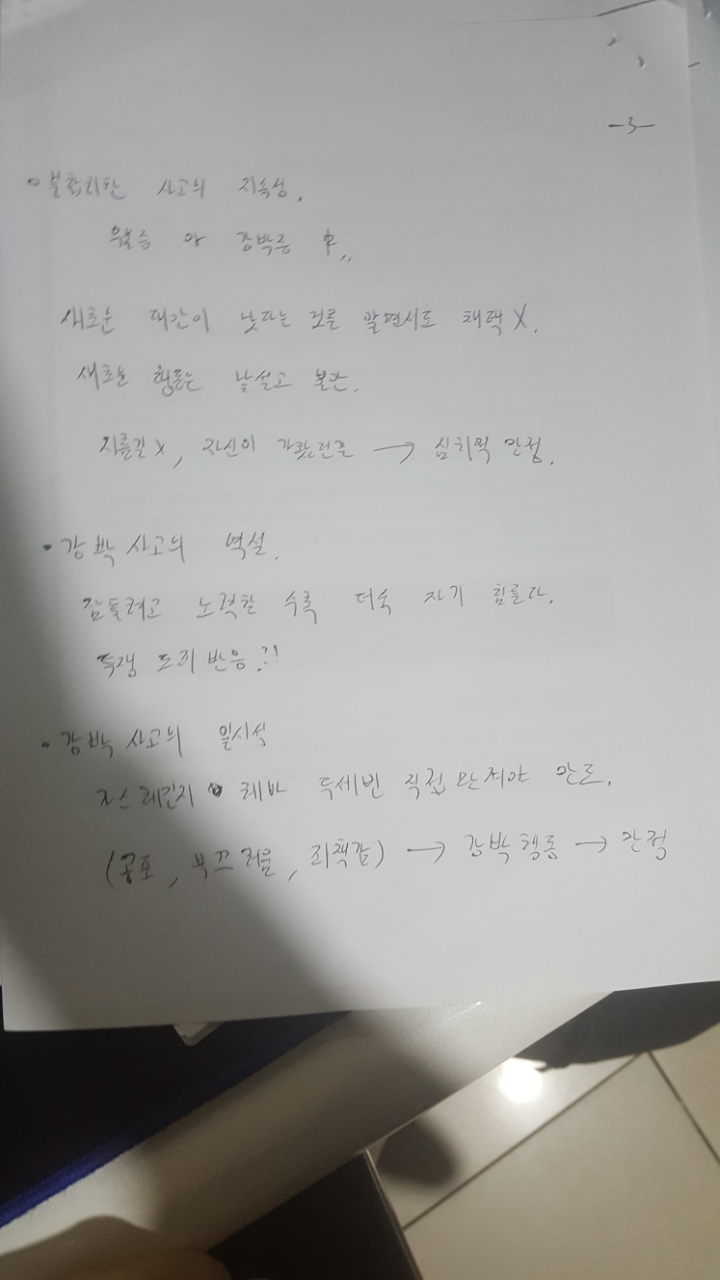 -3-
• 불합리한 사고의 지속성.
우울증 과 강박증 中,,
새로운 대안이 낫다는 것을 알면서도 채택 X.
새로운 행동은 낯설고 불안.
지름길 X, 자신이 가왔던길 → 심리적 안정.
• 강박 사고의 역설.
잠들려고 노력할 수록 더욱 자기 힘들다.
투쟁 도피 반응.?!
• 강박 사고의 의식
가스레인지 레바 두세번 직접 만져야 안도.
(공포, 부끄러움, 죄책감) → 강박 행동 → 안정